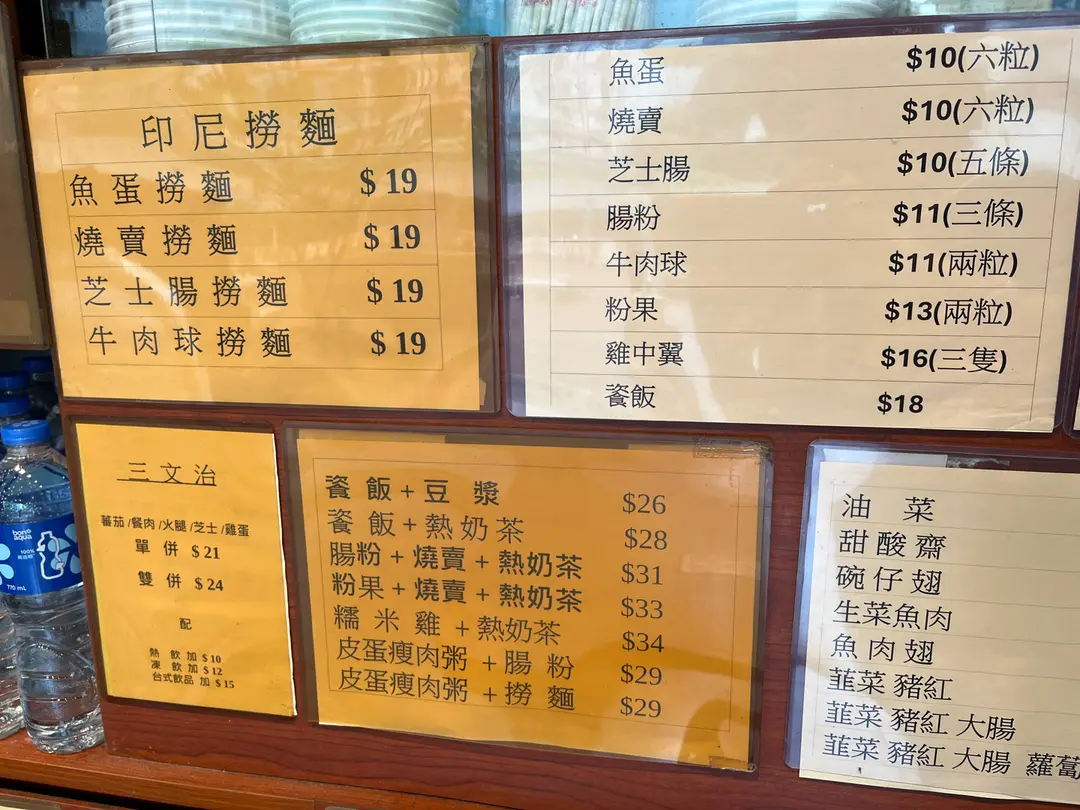 印尼撈麵
魚蛋撈麵 $19
燒賣撈麵 $19
芝士腸撈麵 $19
牛肉球撈麵 $19
魚蛋 $10(六粒)
燒賣 $10(六粒)
芝士腸 $10(五條)
腸粉 $11(三條)
牛肉球 $11(兩粒)
粉果 $13(兩粒)
雞中翼 $16(三隻)
餈飯 $18
三文治
蕃茄/餐肉/火腿/芝士/雞蛋
單併 $21
雙併 $24
配
熱飲加 $10
凍飲加 $12
台式飲品加 $15
餈飯+豆漿 $26
餈飯+熱奶茶 $28
腸粉+燒賣+熱奶茶 $31
粉果+燒賣+熱奶茶 $33
糯米雞+熱奶茶 $34
皮蛋瘦肉粥+腸粉 $29
皮蛋瘦肉粥+撈麵 $29
油菜
甜酸齋
碗仔翅
生菜魚肉
魚肉翅
韮菜豬紅
韮菜豬紅大腸
韮菜豬紅大腸蘿蔔
bonaqua
100%
770 mL